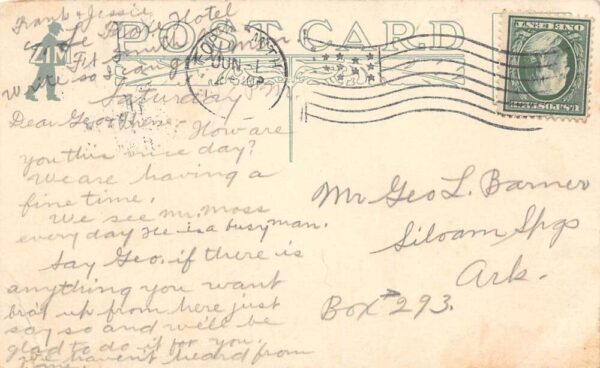 POST CARD
ZIM
Frank & Jessie
Hotel
Ft. Smith
Write so I can get
Saturday
JUN 1
ONE CENT
U.S. POSTAGE
Dear Geo & Irene:-
How are
you this nice day?
We are having a
fine time.
We see Mr. Moss
every day He is a busy man.
Say Geo. if there is
anything you want
bro't up from here just
say so and we'll be
glad to do it for you.
We haven't heard from
home
Mr Geo L. Barner
Siloam Spgs
Ark.
Box 293.